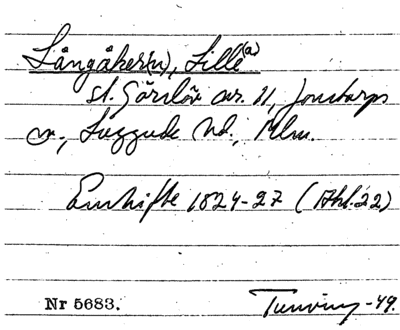 Långåker(n), Lille(a)
st. Görslöv nr. 11, Jonstorps
sn., Luggude hd., Mlm.
Enskifte 1824-27 (Akt. 22)
Nr 5683. Tunving -49.